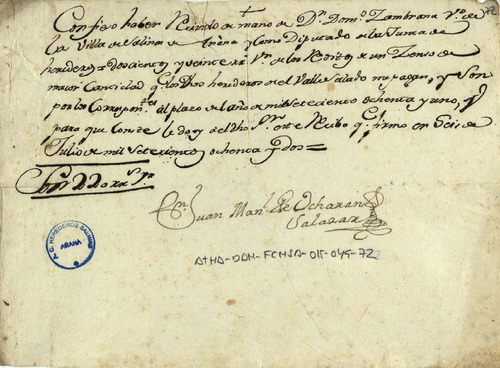 Confieso haber Recivido de mano de Dn. Domo. Zambrana Vo. de
la Villa de Salinas de Añana y como Diputado de la Junta de
herederos doscientos y veinte rs. Vn. de los Reditos de un Zenso de
maior Cantidad q. los dhos herederos del Valle Salado me pagan, y son
por los Correspon.tes al plazo del año de mil setecientos ochenta y uno, y
para que Conste le doy el dho Sor. este Recibo q. firmo en Seis de
Julio de mil setecientos ochenta y dos =
Son 220 rrs. Vn.
Juan Manl. de Ocharan
Salazar
T.C. HEREDEROS SALINAS
AÑANA
ATHA-DAH-FCHSA-015-049-72